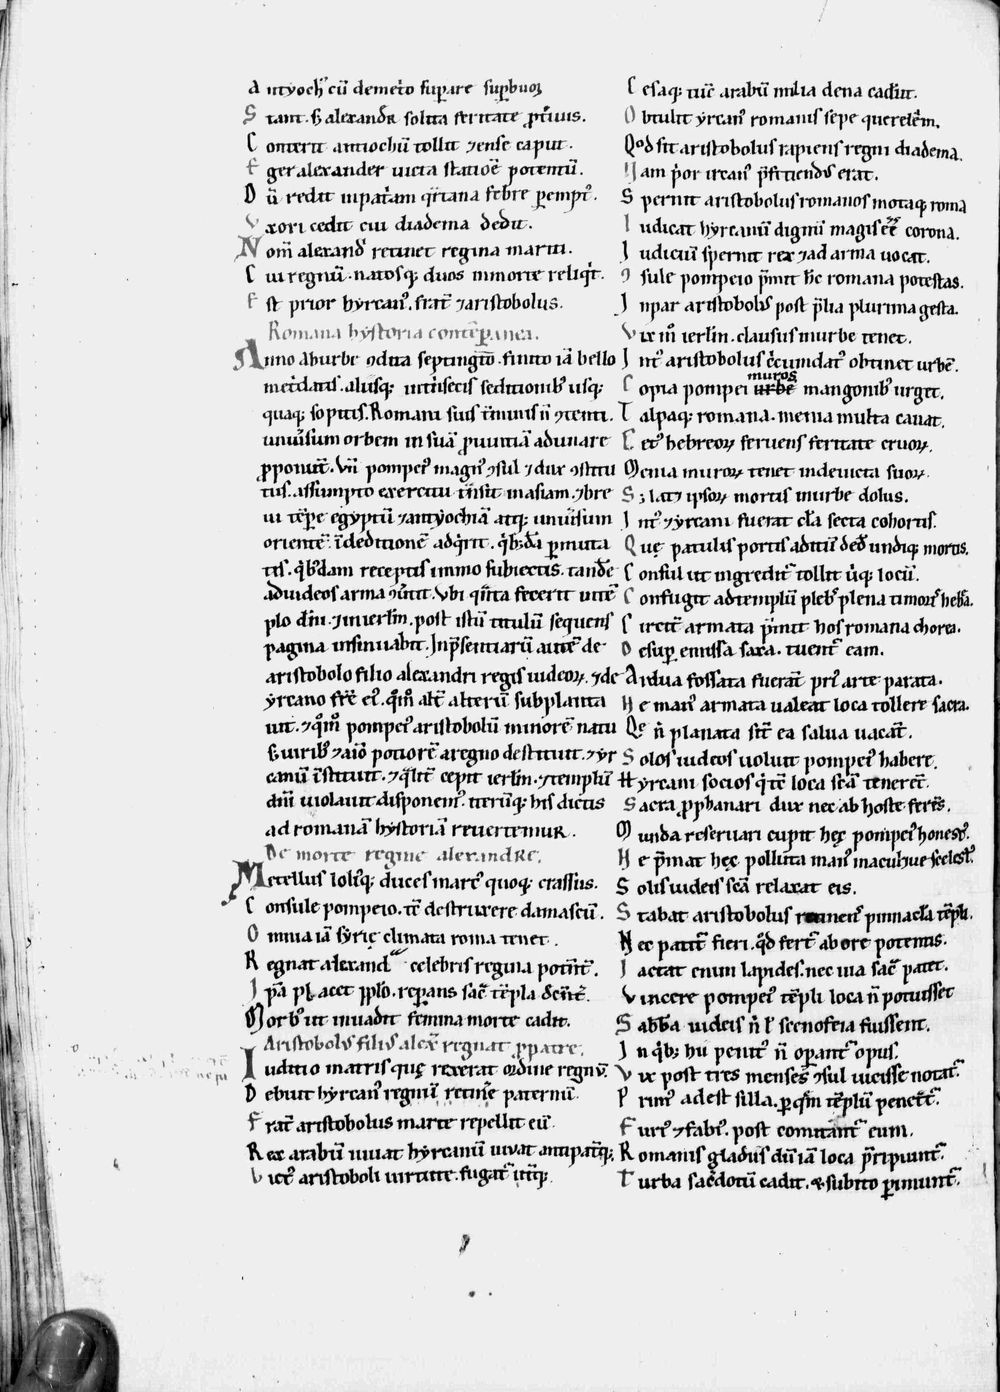 Antyochꝰ cū demet̄o supare supbuoꝝ
Stant. s; alexandr̄ solita feritate pͥuis.
Conterit antiochū tollit ⁊ense caput.
Eger alexander uicta statiōe potentū.
Dū redit inpatͥam qͣrtana febre pemptꝰ.
Vxori cedit cui diadema dedit.
Nom̄ alexandͥ retinet regina mariti.
Cui regnū. natosq; duos inmorte reliqͥt.
Est prior hyrcanꝰ. frat̄ ⁊aristobolus.
Romana hystoria contēpanea.
Anno aburbe ꝯdita septingt̄o. finito iā bello
met̄datis. aliisq; intͥnsecis seditionibꝰ usq;
quaq; sopitis. Romani suis t̄minis n̄ ⁊tenti.
uniūsum orbem in suā puintiā adunare
pponut̄. Vn̄ pompeiꝰ magnꝰ ꝯsul ⁊ dux ꝯstitu
tus. assūmpto exercitu tn̄sit inasiam. ⁊bre
ui tēpe egyptū ⁊antyochiā atq; uniūsum
orientē. īdeditionē adqͥrit. qͥb;dā pmuta
tis. qͥbꝰdam receptis immo subiectis. tandē
adiudeos arma ꝯūtit. Vbi qͣnta fecerit intē
plo dn̄i. ⁊inierlm̄. post istū titulū sequens
pagina insinuabit. Inpͥsentiarū autē de
aristobolo filio alexandri regis iudeoꝝ. ⁊de
yrcano frē eiꝰ. qͦm̄ alt̄ alterū subplanta
uit. ⁊qͦm̄ pompeiꝰ aristobolū minorē natu
s; uiribꝰ ⁊aīo potiorē aregno destituit. ⁊yr
canū īstituit. ⁊qͣlit̄ cepit ierlm̄. ⁊templū
dn̄i uiolauit disponemꝰ. iterūq; his dictis
ad romanā hystoriā revertemur.
De morte regine alexandre.
Metellus loliꝰq; duces marcꝰ quoq; crassus.
Consule pompeio. tc̄ destruxere damascū.
Omnia iā syrię climata roma tenet.
Regnat alexandͣ celebris regina potn̄t̄.
Ipā placet pplo. repans sac̄ tēpla dc̄nt̄.
Morbꝰ ut inuadit femina morte cadit.
Aristobolꝰ filiꝰ alex̄ regnat ppatre.
Iuditio matris quę rexerat ordine regnū.
Debuit hyrcanꝰ regnū retinͥe paternū.
Frat̄ aristobolus marte repellit eū.
Rex arabū uiuat hyrcanū uiuat antipatͥq;.
Victꝰ aristoboli uirtute. fugat̄ ut̄q;.
Cesaq; tūc arabū milia dena cadūt.
Obtulit yrcanꝰ romanis sepe querelēm.
Qod sit aristobolus rapiens regni diadema.
Nam pͥor ircanꝰ pͥfitiendꝰ erat.
Spernit aristobolus romanos motaq; roma
Iudicat hyrcanū dignū magis eē corona.
Iudiciū spernit rex ⁊ad arma uocat.
ꝯsule pompeio pͥmit hc̄ romana potestas.
Inpar aristobolꝰ post plia plurima gesta.
Vix in̄ ierlm̄. clausus inurbe tenet.
Intꝰ aristobolus cͥcumdatꝰ obtinet urbē.
Copia pompei muros mangonibꝰ urget.
Talpaq; romana. menia multa cauat.
Cetꝰ hebreoꝝ feruens feritate cruoꝝ.
Menia muroꝝ tenet indeuicta suoꝝ.
S; latꝫ ipsoꝝ mortis inurbe dolus.
Intꝰ ⁊yrcani fuerat cl̄a secta cohortis.
Quę patulis portis aditū dedͥ undiq; mortis.
Consul ut ingreditꝰ tollit uͥq; locū.
Confugit adtemplū plebꝰ plena timorꝰ hebr̄a.
Circūt̄ armata pͥmit hos romana chorea.
Desup emissa saxa. tuent̄ eam.
Ardua fossata fuerāt prͥ arte parata.
Ne manꝰ armata ualeat loca tollere sacra.
Qe n̄ planata st̄t ea salua uacat̄.
Solos iudeos uoluit pompeiꝰ habere.
Hyrcani socios qͥ tc̄ loca scā tenerēt.
Sacra pphanari dux nec ab hoste ferēs.
Munda reseruari cupit hęc pompeiꝰ honestꝰ.
Ne pͥmat hęc polluta manꝰ macuhue scelestꝰ.
Solis iudeis scā relaxat eis.
Stabat aristobolus retinenꝰ pinnacl̄a tēpli.
Nec patit̄ fieri. qͦd fert̄ ab ore potentis.
Iactat enim lapides. nec uia sac̄ patet.
Vincere pompeiꝰ tēpli loca n̄ potuisset
Sabb̄a iudeis n̄ l̄ scenofeia fuissent.
In qͥb; hii penitꝰ n̄ opant̄ opus.
Vix post tres menses ꝯsul uicisse notat̄.
Primꝰ adest silla. p qͥm tēplū penetͣt̄.
Furiꝰ ⁊ fabiꝰ. post comitant̄ eum.
Romanis gladiis dū iā loca pͥripiunt̄.
Turba sac̄dotū cadit. & subito pimunt̄.